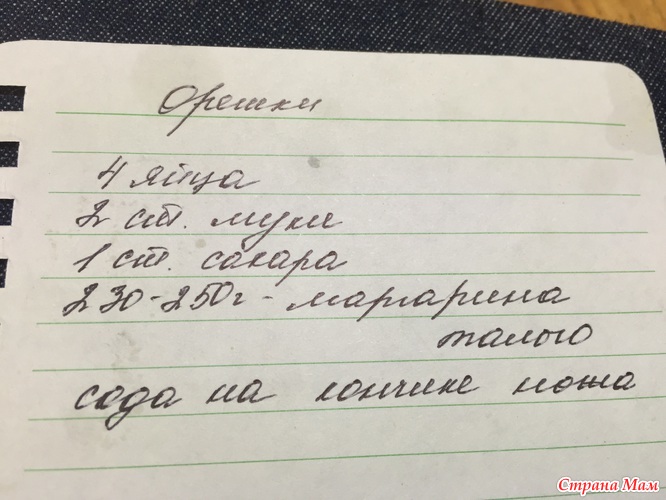 Орешки
4 яйца
2 ст. муки
1 ст. сахара
230-250г - маргарина
талого
сода на кончике ножа
Страна Мам